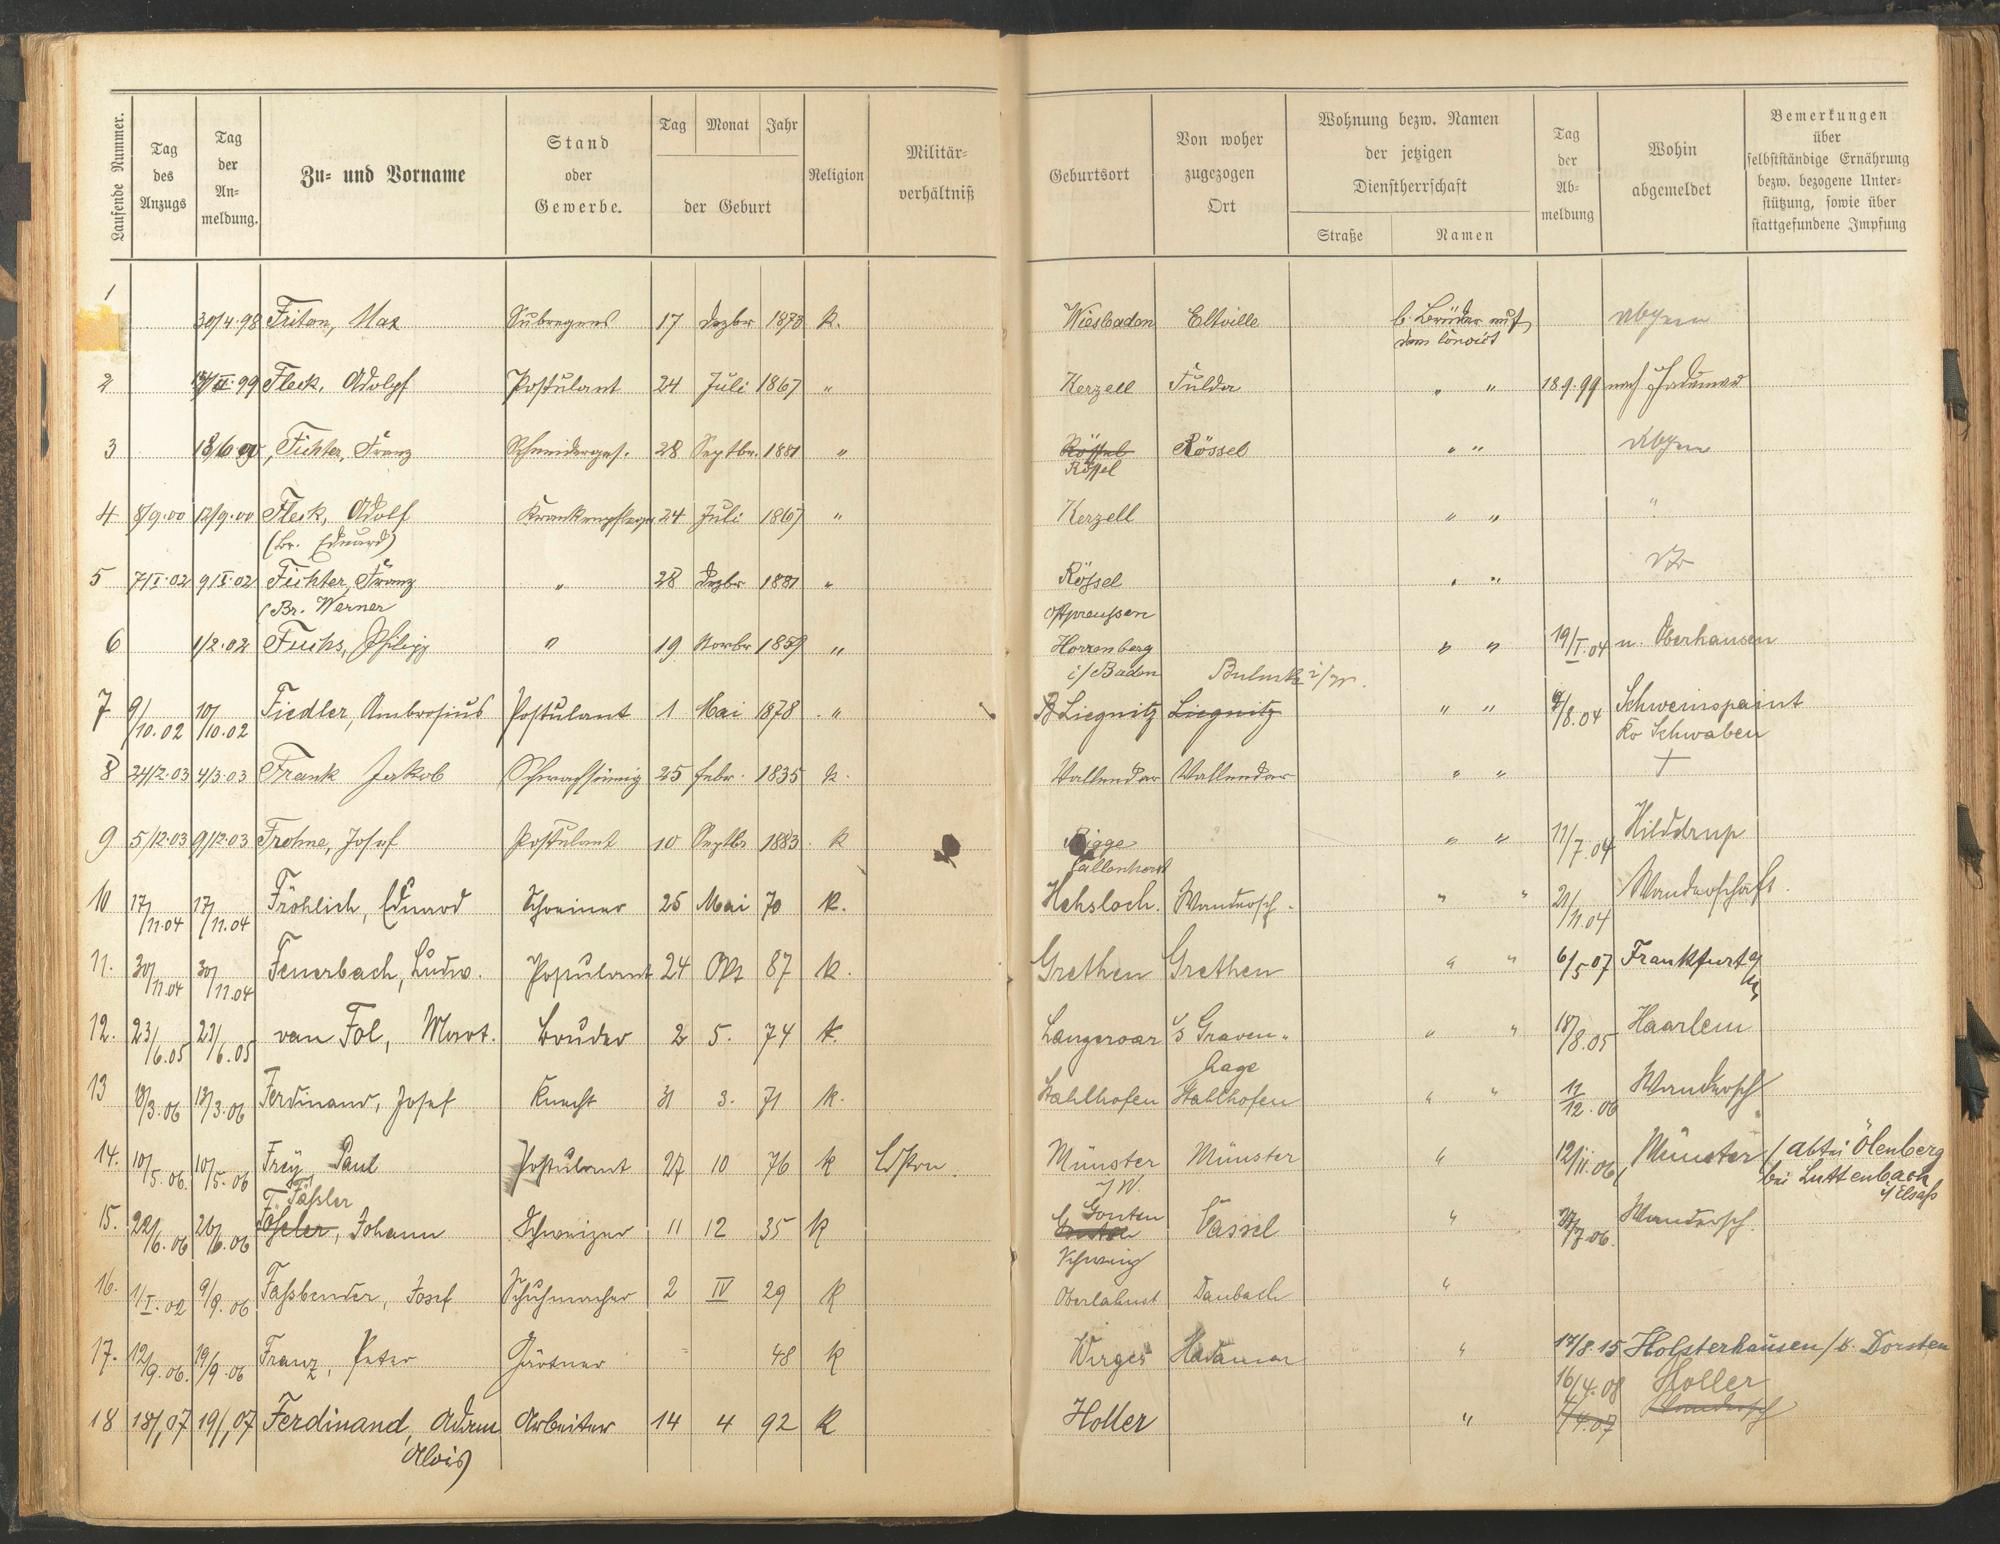 Laufende Nummer. Tag des Anzugs Tag der An-meldung. Zu- und Vorname Stand oder Gewerbe. Tag Monat Jahr der Geburt Religion Militär-verhältniß Geburtsort Von woher zugezogen Ort Wohnung bezw. Namen der jetzigen Dienstherrschaft Straße Namen Tag der Ab-meldung Wohin abgemeldet Bemerkungen über selbstständige Ernährung bezw. bezogene Unter-stützung, sowie über stattgefundene Impfung
1 30/4.98 Friton, Max Subregens 17 Dezbr 1878 k. Wiesbaden Eltville b. Brüder auf
dem
2 Fleck, Adolph Postulant 24 Juli 1867 " Kerzell Fulda " " 18.9.99 nach Hadamar
3 Fichter, Franz Schneiderges. 28 Septbr. 1881 " Rössel Rössel " "
Rössel
4 8/9.00 12/9.00 Fleck, Adolf Krankenpfleger 24 Juli 1867 " Kerzell " " "
(Br. Eduard)
5 7/I.02 9/I.02 Fichter, Franz " 28 Dezbr 1881 " Rössel " "
(Br. Werner Ostpreußen
6 1/2.02 Fuchs, Philipp " 19 Novbr 1859 " Horrenberg " " 19/I.04 n. Oberhausen
i/Baden
7 9/10.02 10/10.02 Fiedler, Ambrosius Postulant 1 Mai 1878 " Liegnitz Liegnitz " " /8.04 Schweinspaint
Kr Schwaben
8 24/2.03 4/3.03 Frank Jakob Schwachsinnig 25 Febr. 1835 k. Vallendar Vallendar " " +
9 5/12.03 9/12.03 Frohne, Josef Postulant 10 Septbr 1883 k Bigge " " 11/7.04 Hilddrup
10 17/11.04 17/11.04 Fröhlich, Eduard Schreiner 25 Mai 70 k. Hehsloch. Wandersch. " " 21/11.04 Wanderschaft.
11. 30/11.04 30/11.04 Feuerbach, Ludw. Postulant 24 Okt 87 k. Grethen Grethen " " 6/5 07 Frankfurt a/M
12. 23/6.05 23/6.05 van Fol, Mart. Bruder 2 5. 74 k. Langeroar 's Graven- " " 18/8.05 Haarlem
hage
13 13/3.06 13/3.06 Ferdinand, Josef Knecht 31 3. 71 k. Stahlhofen Stahlhofen " " 11/12.06 Wandersch
14. 10/5.06. 10/5.06 Frey Paul Postulant 27 10 76 k Ldstrm. Münster Münster " 12/11.06 Münster (Abtei Ölenberg
i/W. bei Luttenbach
i/Elsaß
Fäßler
15. 22/6.06 26/6.06 Johann Schweizer 11 12 35 k Gonten Cassel " /7.06. Wandersch.
Schweiz
16. 1/I.02 9/9.06 Faßbender, Josef Schuhmacher 2 IV 29 k Oberlahnst Daubach "
17. 12/9.06. 19/9.06 Franz, Peter Gärtner 48 k Wirges Hadamar " 17/8.15 Holsterhausen/b. Dorsten
16/4.08 Holler
18 18/1,07 19/1,07 Ferdinand, Adam Arbeiter 14 4 92 k Holler " /4.07 Wandersch
Alois)